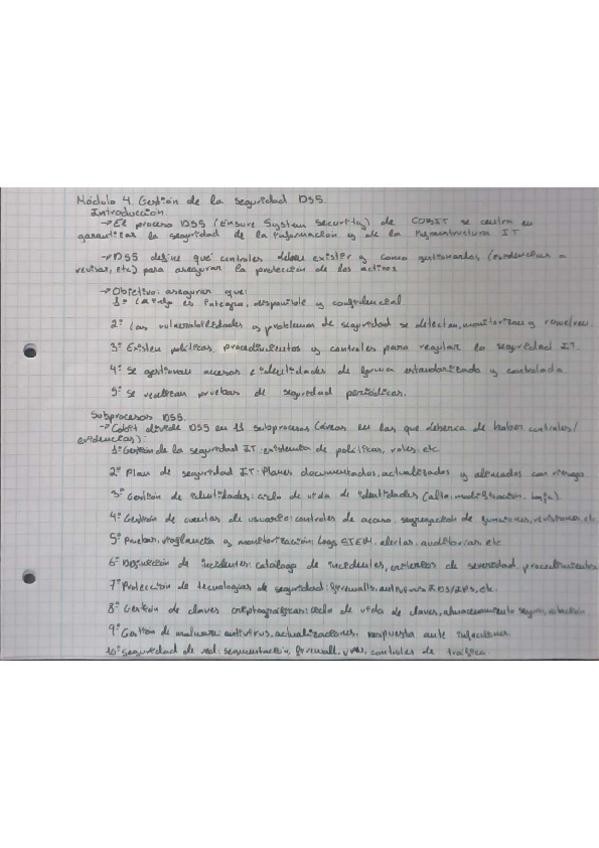 Módulo 4. Gestión de la seguridad DS5.
Introducción.
→ El proceso DS5 (Ensure System Security) de COBIT se centra en
garantizar la seguridad de la información y de la infraestructura IT
→ DS5 define qué controles deben existir y como gestionarlos (evidencias a
revisar, etc) para asegurar la protección de los activos
→ Objetivo: asegurar que:
1º La info es íntegra, disponible y confidencial
2º Las vulnerabilidades y problemas de seguridad se detectan, monitorizan y resuelven.
3º Existen políticas, procedimientos y controles para regular la seguridad IT.
4º Se gestionan accesos e identidades de forma estandarizada y controlada
5º Se realizan pruebas de seguridad periódicas.
Subprocesos DS5.
→ Cobit divide DS5 en 11 subprocesos (áreas en las que debería de haber controles/
evidencias):
1º Gestión de la seguridad IT: existencia de políticas, roles, etc
2º Plan de seguridad IT: Planes documentados, actualizados y alineados con riesgo
3º Gestión de identidades: ciclo de vida de identidades (alta, modificación, baja)
4º Gestión de cuentas de usuario: controles de acceso, segregación de funciones, revisiones, etc.
5º Pruebas, vigilancia y monitorización: Logs SIEM, alertas, auditorías, etc
6º Definición de incidentes: catálogo de incidentes, criterios de severidad, procedimientos
7º Protección de tecnologías de seguridad: firewalls, antivirus IDS/IPS, etc.
8º Gestión de claves criptográficas: ciclo de vida de claves, almacenamiento seguro, rotación
9º Gestión de malware: antivirus, actualizaciones, respuesta ante infecciones.
10º Seguridad de red: segmentación, firewall, VPN, controles de tráfico.